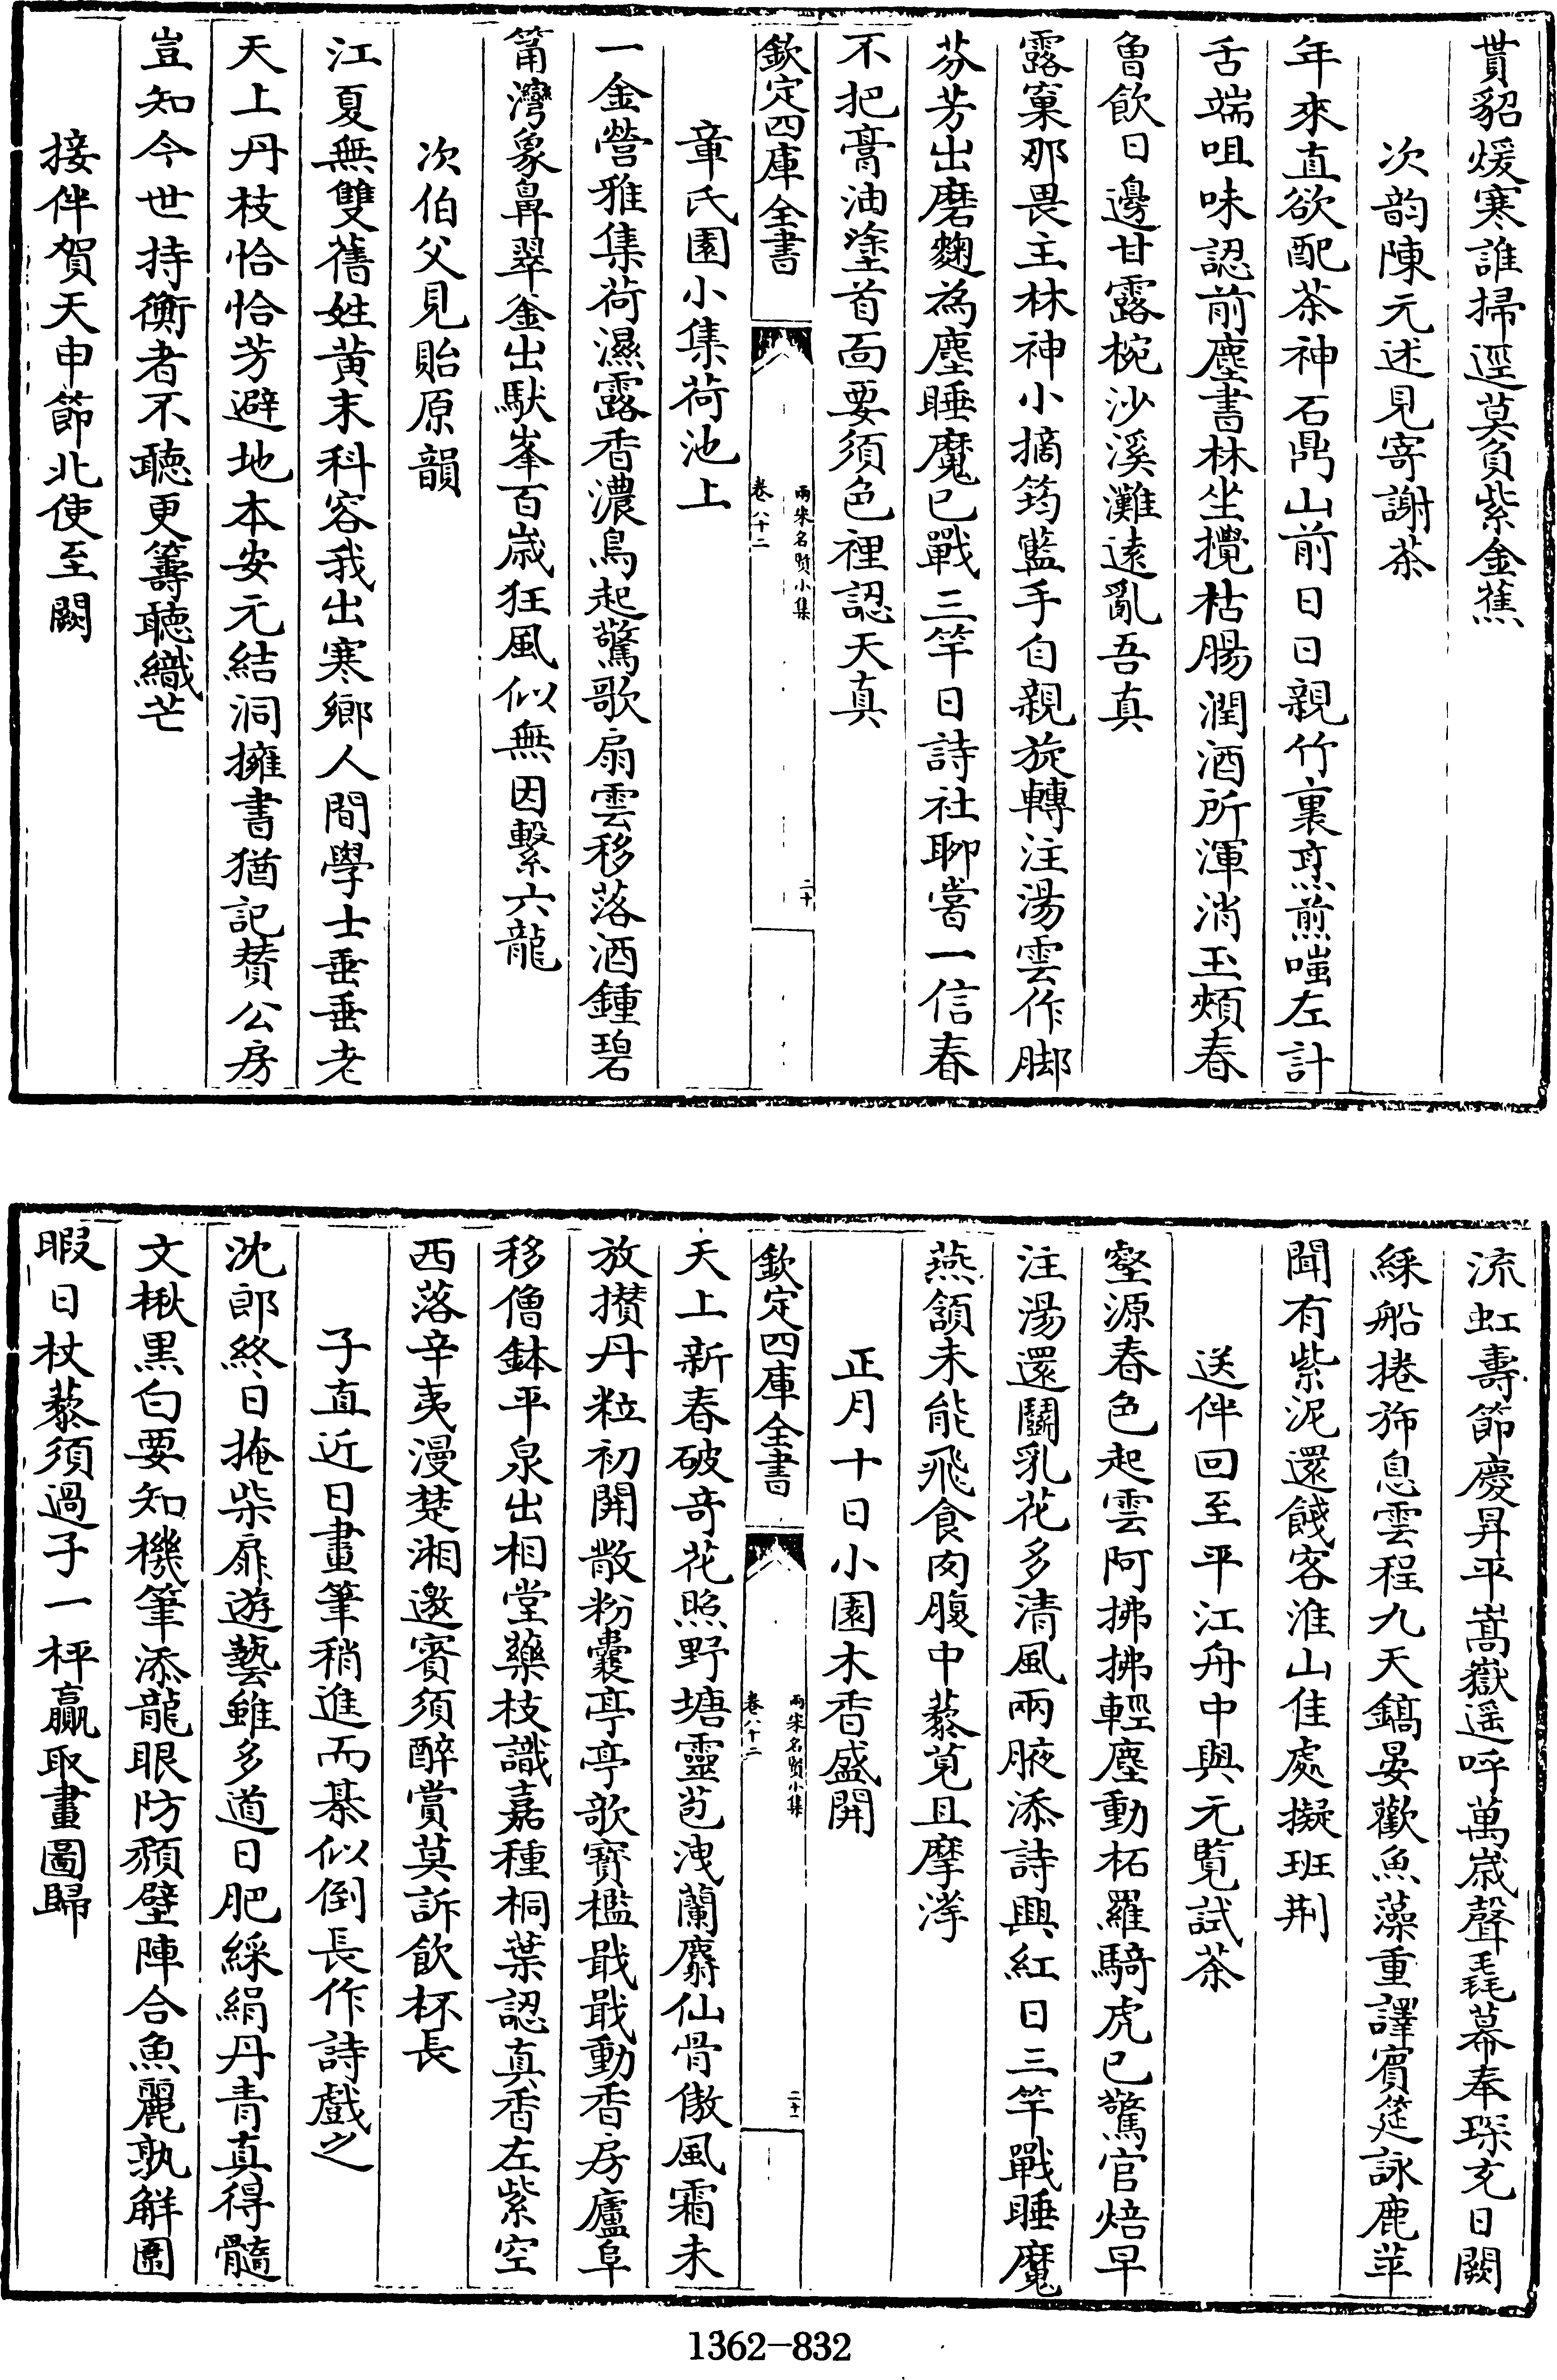 貰貂煖寒誰掃逕莫負紫金蕉
次韵陳元述見寄謝茶
年來直欲配茶神石鼎山前日日親竹裏烹煎嗤左計
舌端咀味認前塵書林坐攪枯腸潤酒所渾消玉頰春
曾飲日邊甘露椀沙溪灘遠亂吾真
露窠那畏主林神小摘筠籃手自親旋轉注湯雲作脚
芬芳出磨麴為塵睡魔已戰三竿日詩社聊嘗一信春
不把膏油塗首面要須色裡認天真
欽定四庫全書
兩宋名賢小集
卷八十二
二十
章氏園小集荷池上
一金營雅集荷濕露香濃鳥起驚歌扇雲移落酒鍾碧
筩灣象鼻翠釜出馱峯百歲狂風似無因繫六龍
次伯父見貽原韻
江夏無雙舊姓黃末科容我出寒鄉人間學士垂垂老
天上丹枝恰恰芳避地本安元結洞擁書猶記賛公房
豈知今世持衡者不聽更籌聽織芒
接伴賀天申節北使至闕
流虹壽節慶昇平嵩嶽遥呼萬歲聲毳幕奉琛充日闕
綵船捲斾息雲程九天鎬晏歡魚藻重譯賓筵詠鹿苹
聞有紫泥還餞客淮山佳處擬班荆
送伴回至平江舟中與元覧試茶
壑源春色起雲阿拂拂輕塵動柘羅騎虎已驚官焙早
注湯還鬬乳花多清風兩腋添詩興紅日三竿戰睡魔
燕頷未能飛食肉腹中藜莧且摩挲
正月十日小園木香盛開
欽定四庫全書
兩宋名賢小集
卷八十二
二十一
天上新春破竒花照野塘靈苞洩蘭麝仙骨傲風霜未
放攅丹粒初開散粉囊亭亭歌寳檻戢戢動香房廬阜
移僧鉢平泉出相堂藥枝識嘉種桐葉認真香左紫空
西落辛夷漫楚湘邀賓須醉賞莫訴飲杯長
子直近日畫筆稍進而棊似倒長作詩戲之
沈郎終日掩柴扉遊藝雖多道日肥綵絹丹青真得髓
文楸黒白要知機筆添龍眼防頹壁陣合魚麗孰解圍
暇日杖藜須過子一枰贏取畫圖歸
1362-832